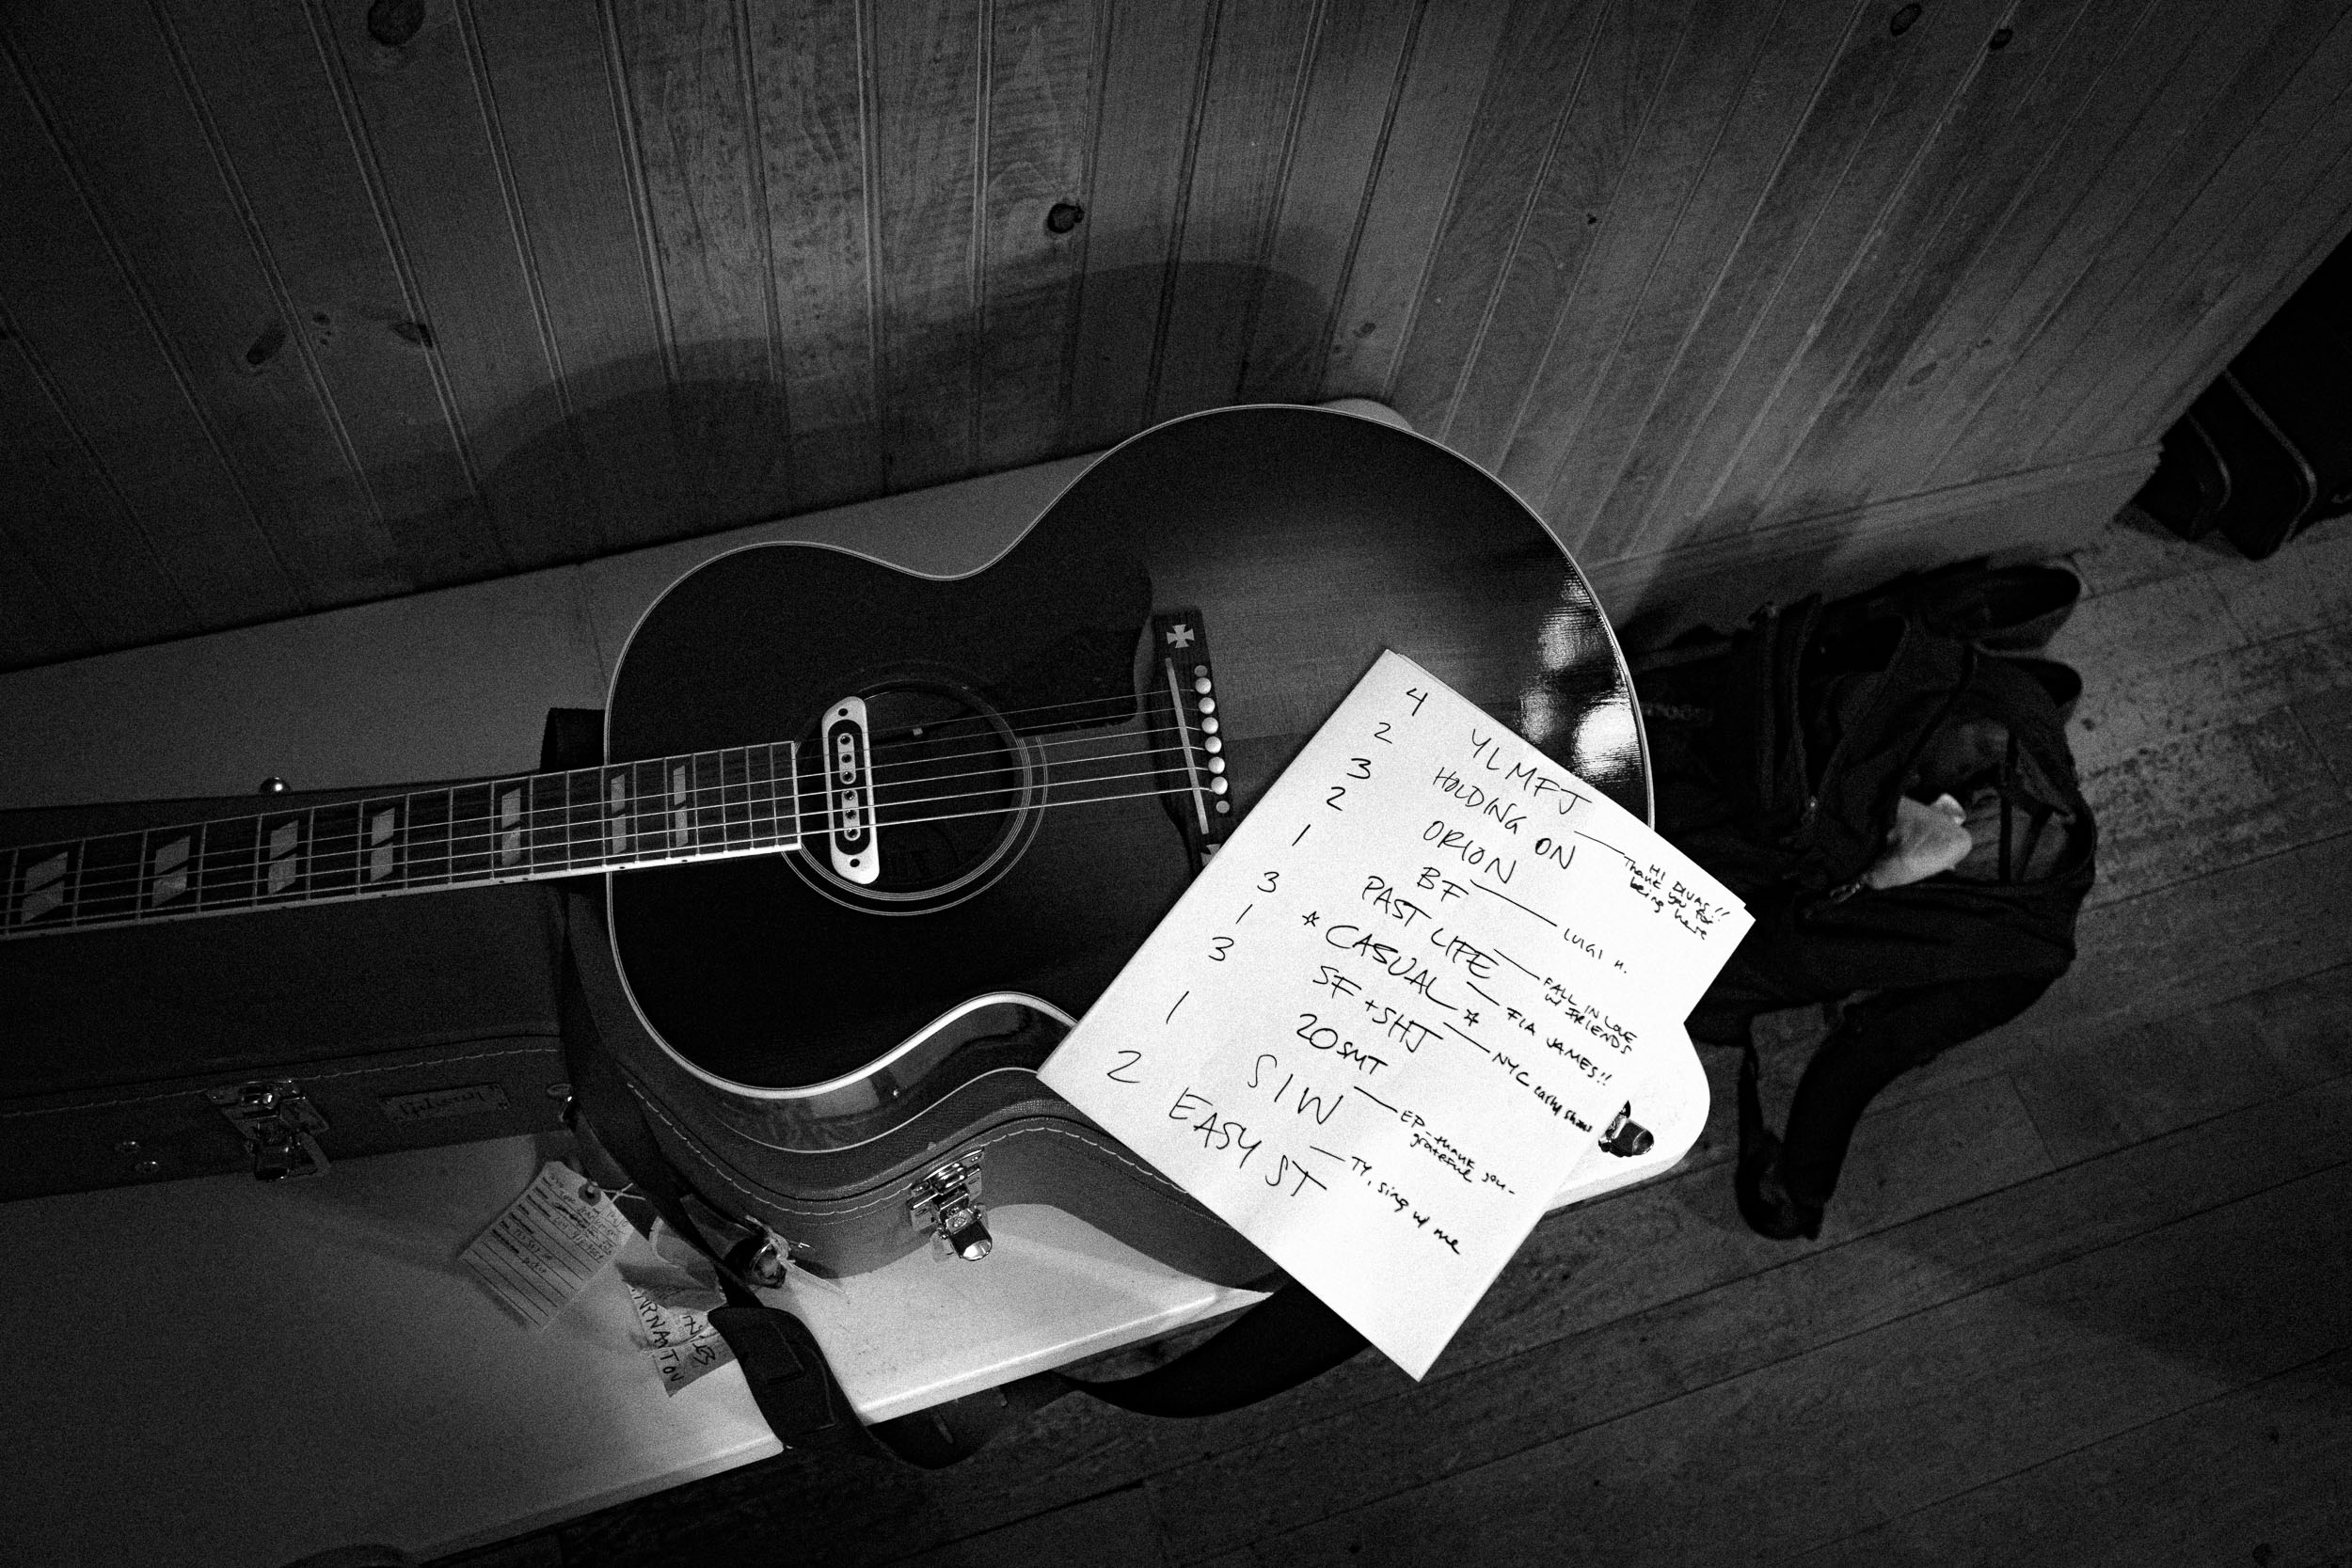 4 YLMFJ
2 HOLDING ON — HI DIVAS!!
Thank you for
being here
3 ORION
2 BF — LUIGI H.
1 PAST LIFE — FALL IN LOVE
W/ FRIENDS
3 * CASUAL * — FIA JAMES!!
1 SF + SHJ — NYC early show
3 20SMT
1 SIW — EP - thank you -
grateful
2 EASY ST — TY, sing w/ me